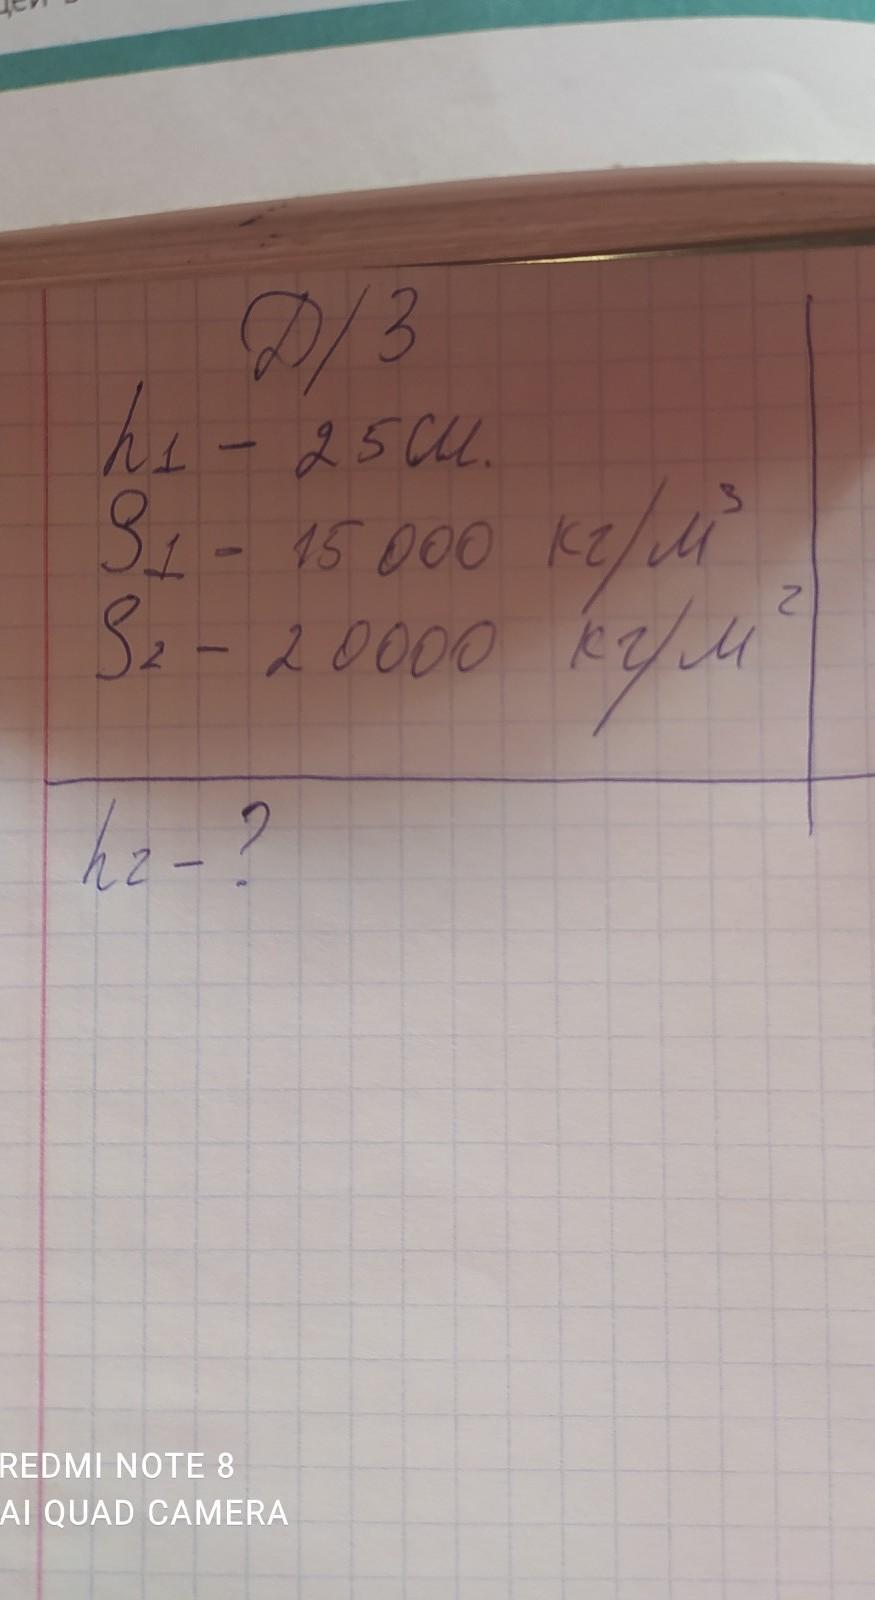 Д/З
h1 - 25 см.
ρ1 - 15 000 кг/м³
ρ2 - 20000 кг/м²
h2 - ?
REDMI NOTE 8
AI QUAD CAMERA